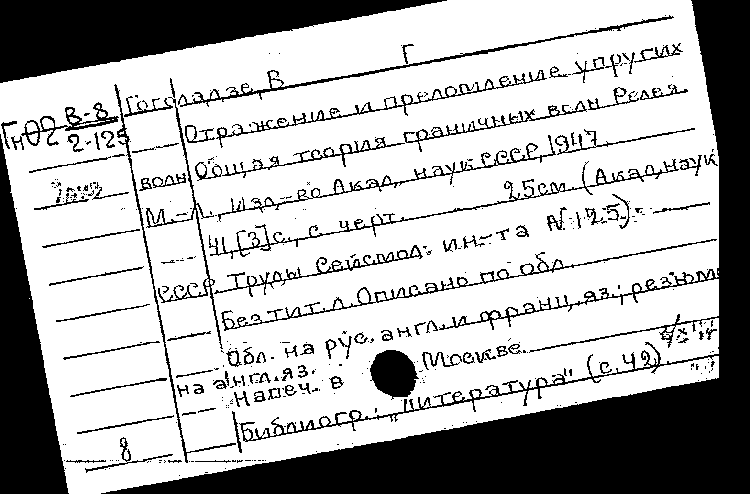 Г
Гоголадзе, В
ГнО2 В-8
2-125
Отражение и преломление упругих
волн. Общая теория граничных волн Релея.
М.-Л., Изд.-во Акад. наук СССР, 1947.
41,[3]с., с черт. 25см. (Акад. наук
СССР. Труды Сейсмол. ин-та № 125).
Без тит. л. Описано по обл.
Обл. на рус. англ. и франц. яз.; резюме
на англ. яз.
Напеч. в Москве.
Библиогр.: „литература" (с.42).
8